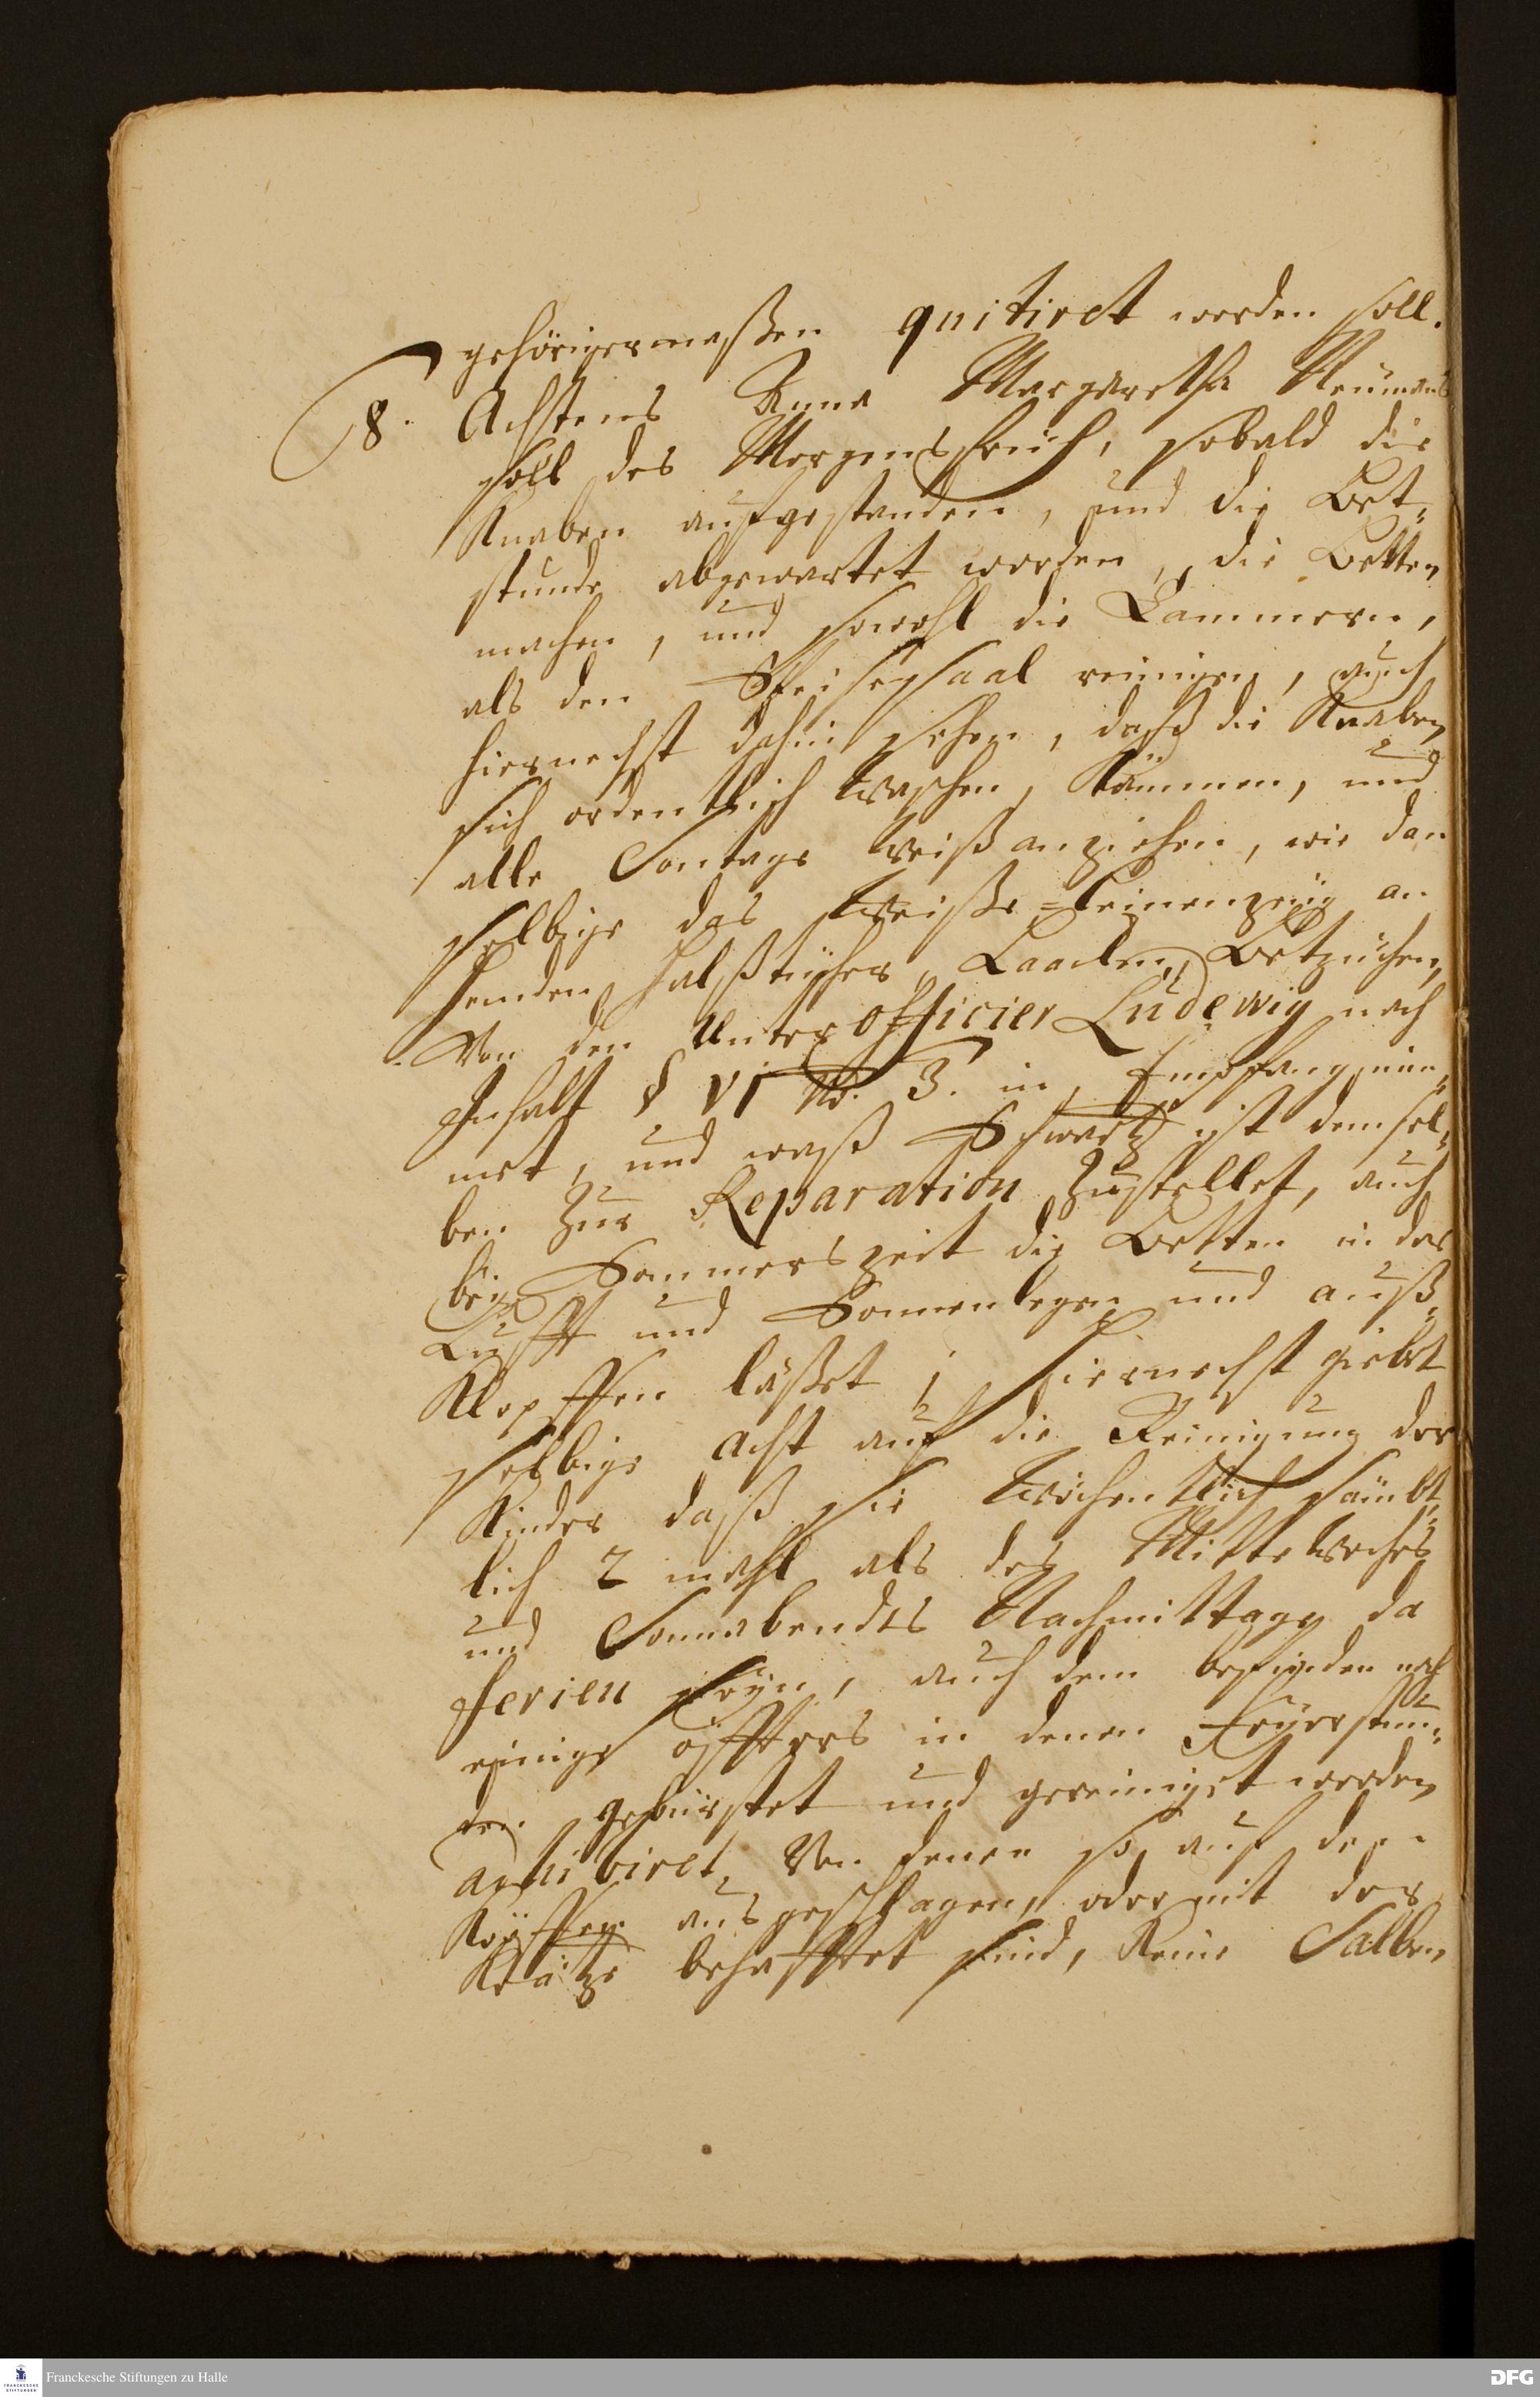 gehörigermaßen quitiret werden soll.
8. Achtens Anna Margaretha Neumans
soll des Morgens früh, sobald die
Knaben aufgestanden, und die Bet-
stunde abgewartet worden, die Betten
machen, und sowohl die Cammern,
als den Speisesaal reinigen, auch
hiernechst dahin sehen, daß die Knaben
sich ordentlich waschen, Kämmen, und
alle Sontage weiß anziehen, wie dan
selbige das Weiße-Leinenzeüg an
Hemden, Halßtücher, Laacken, Betzüchen,
Von den Unterofficier Ludewig nach
Inhalt § VI No. 3. in Empfang nim-
met, und waß Schwartz ist demsel-
ben zur Reparation zustellet, auch
bey Sommerszeit die Betten in der
Lufft und Sonnen legen und auß-
Klopffen läßet; hiernechst giebet
selbige acht auf die Reinigung der
Kinder daß sie wöchentlich sämbt-
lich 2 mahl als des Mittewochs
und Sonnabendts Nachmittage da
ferien seyn, auch dem befinden nach
einige öffters in denen Feyerstun-
den gebürstet und gereiniget werden
Von denen so auf den
Köpffen ausgeschlagen, oder mit der
Krätze behafftet sind, Keine Salben,
Franckesche Stiftungen zu Halle
DFG